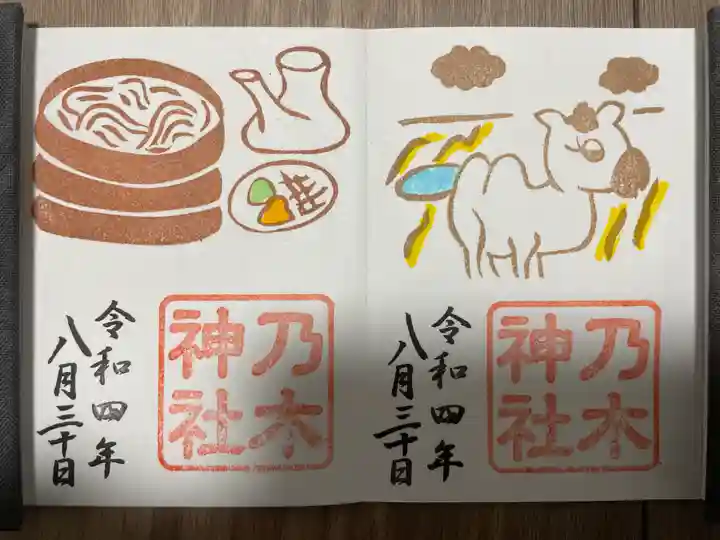 乃木
神社
令和四年
八月三十日
乃木
神社
令和四年
八月三十日